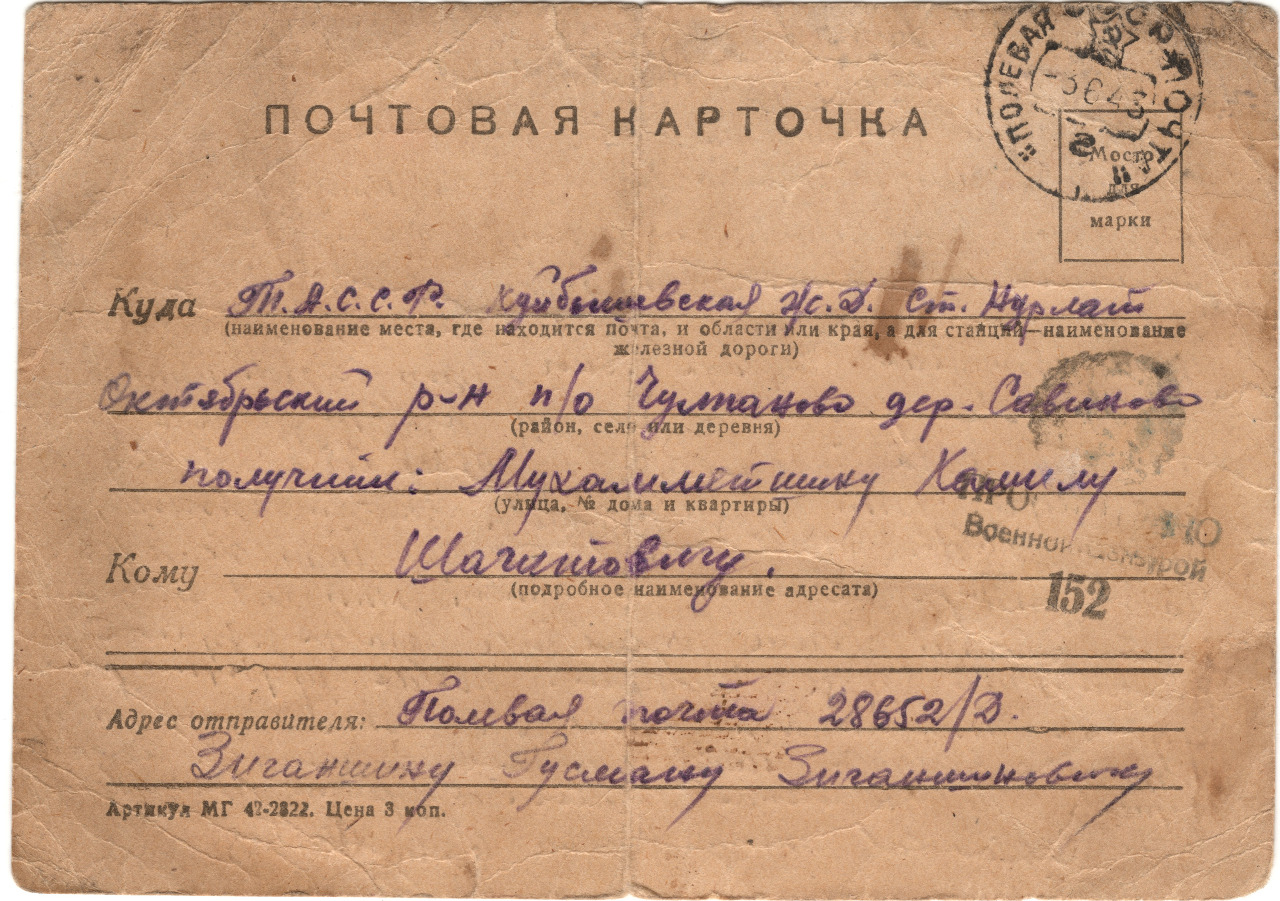 СССР
"ПОЛЕВАЯ ПОЧТА"
-3 6 43
2
ПОЧТОВАЯ КАРТОЧКА
Место
для
марки
Куда Т.А.С.С.Р. Куйбышевская Ж.Д. ст. Нурлат
(наименование места, где находится почта, и области или края, а для станций—наименование
железной дороги)
Октябрьский р-н п/о Чулпаново дер. Савиново
(район, село или деревня)
получит: Мухамметшину Хамилу
(улица, № дома и квартиры)
Военной Цензурой
152
Кому
(подробное наименование адресата)
Адрес отправителя: Полевая почта 28652/Д.
Зиганшину Гусману Зиганшиновичу
Артикул МГ 42-2822. Цена 3 коп.